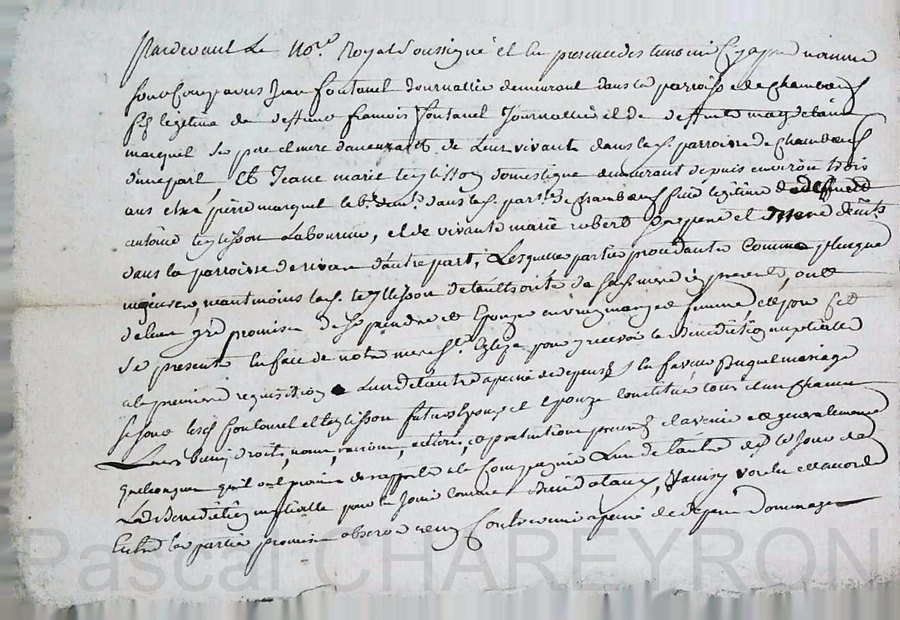 Pardevant Le No.re Royal Soussigné et en presence des temoins cy apres nommes
furent Comparus Jean fontanel Journallier demeurant dans la parroisse de Chambœuf
fils legitime de deffunt francois fontanel Journallier et de deffunte magdelaine
marquet Se pere et mere de leur vivant dans lad. parroisse de Chambœuf
d'une part, Et Jeane marie teyssisson domestique demeurant depuis environ trois
ans chez pierre marquet dans lad. parr. de Chambœuf fille legitime de deffunt
antoine teyllisson Laboureur, et de vivante marie robert Ses pere et mere
dans la parroisse de rivas d'autre part, Lesquelles parties procedante Comme
majeures, neantmoins lad. teyllisson de l'authorité de sad. mere icy presente, ont
de leur gré promis de Se prendre et Epouser en vray mary et femme, et pour cet
Se presenter en face de notre mere Ste Eglize pour y recevoir la Benediction nuptialle
a la premiere requisition de L'un de l'autre a peine de depens, en faveur duquel mariage
lesd. fontanel et teyllisson futurs Epoux et Epouze Constitue tous et un chacun
Leurs biens, droits, noms, raisons, actions, et pretentions presents et avenir et generalement
quelconques qu'il ont promis de rapporter a la Compagnie L'un de l'autre des le Jour de
La Benediction nuptialle pour en Jouir comme, ainsy voulu et accordé
Entre les parties promis observer a peine de depens Dommages
Pascal CHAREYRON